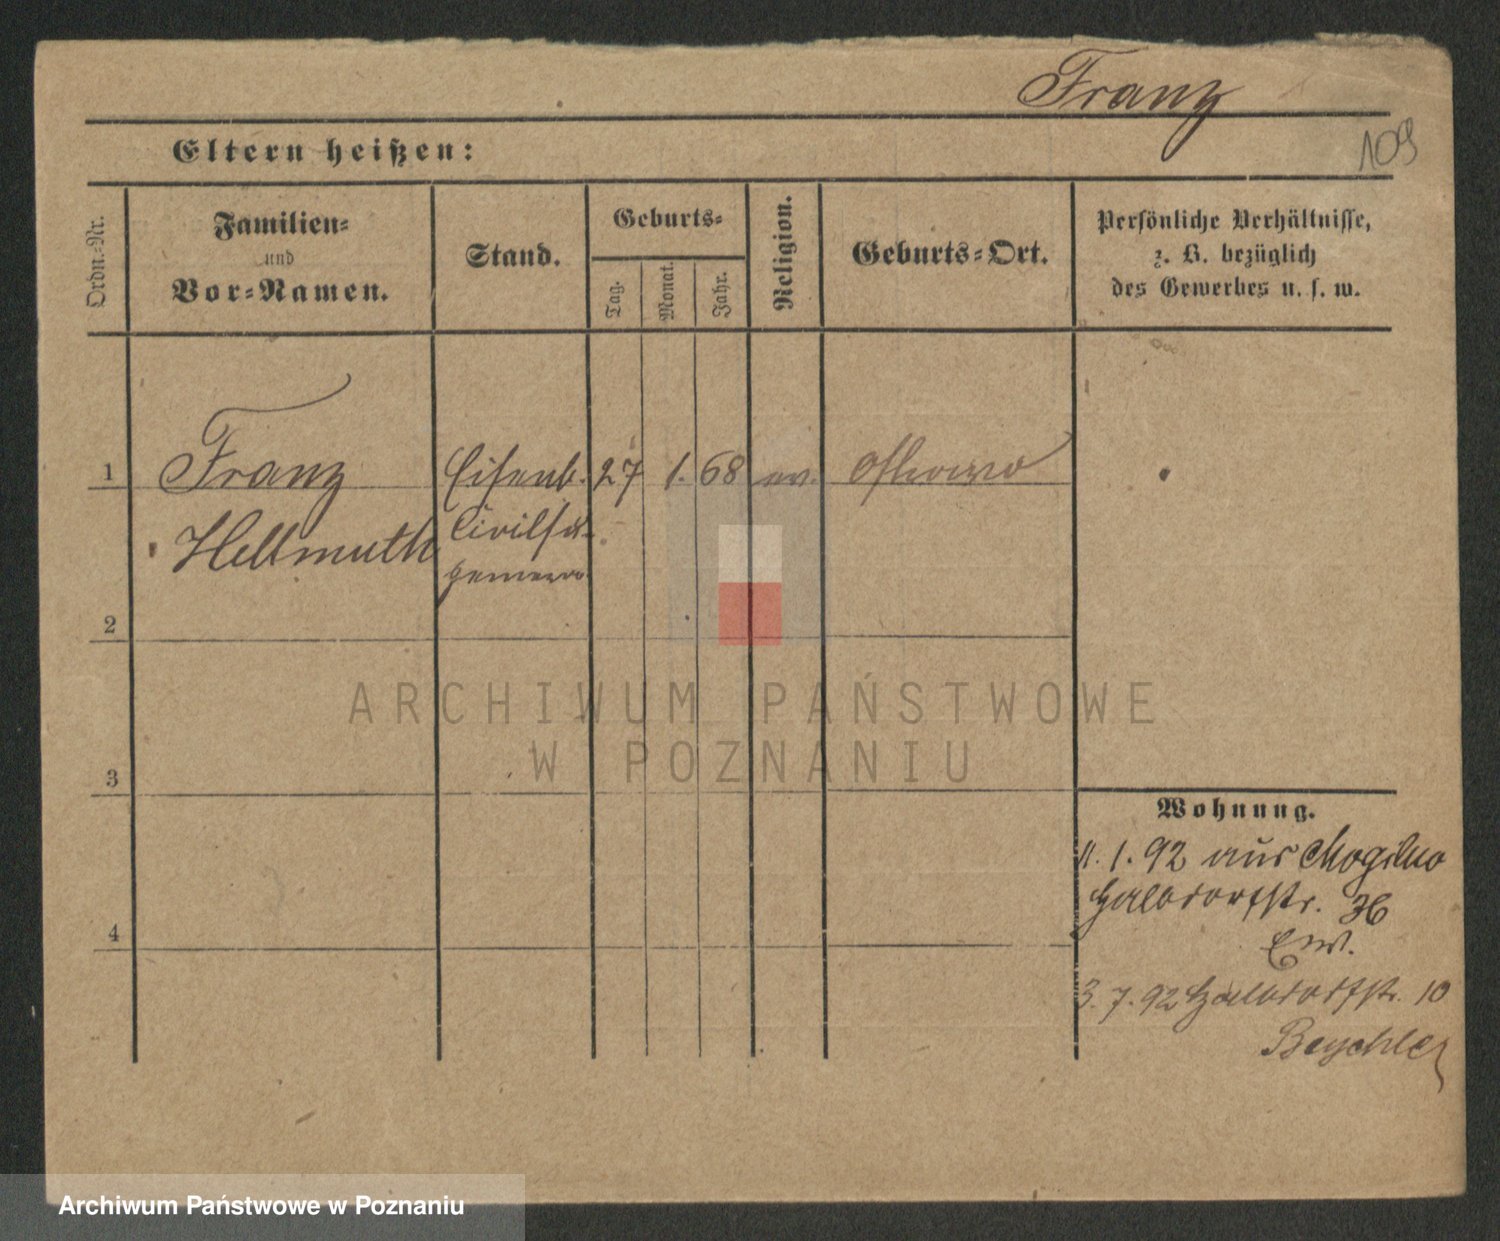 Franz
109
Eltern heißen:
Ordn.-Nr.
Familien-
und
Vor-Namen.
Stand.
Geburts-
Tag.
Monat.
Jahr.
Religion.
Geburts-Ort.
Persönliche Verhältnisse,
z. B. bezüglich
des Gewerbes u. s. w.
1
Franz
Hellmuth
Eisenb.
Civilsu-
27
1.
68
ev.
Ostrowo
2
3
4
ARCHIWUM PAŃSTWOWE
W POZNANIU
Wohnung.
11.1.92 aus Mogilno
Halbdorfstr.
3.7.92 Halbdorfstr. 10
Archiwum Państwowe w Poznaniu